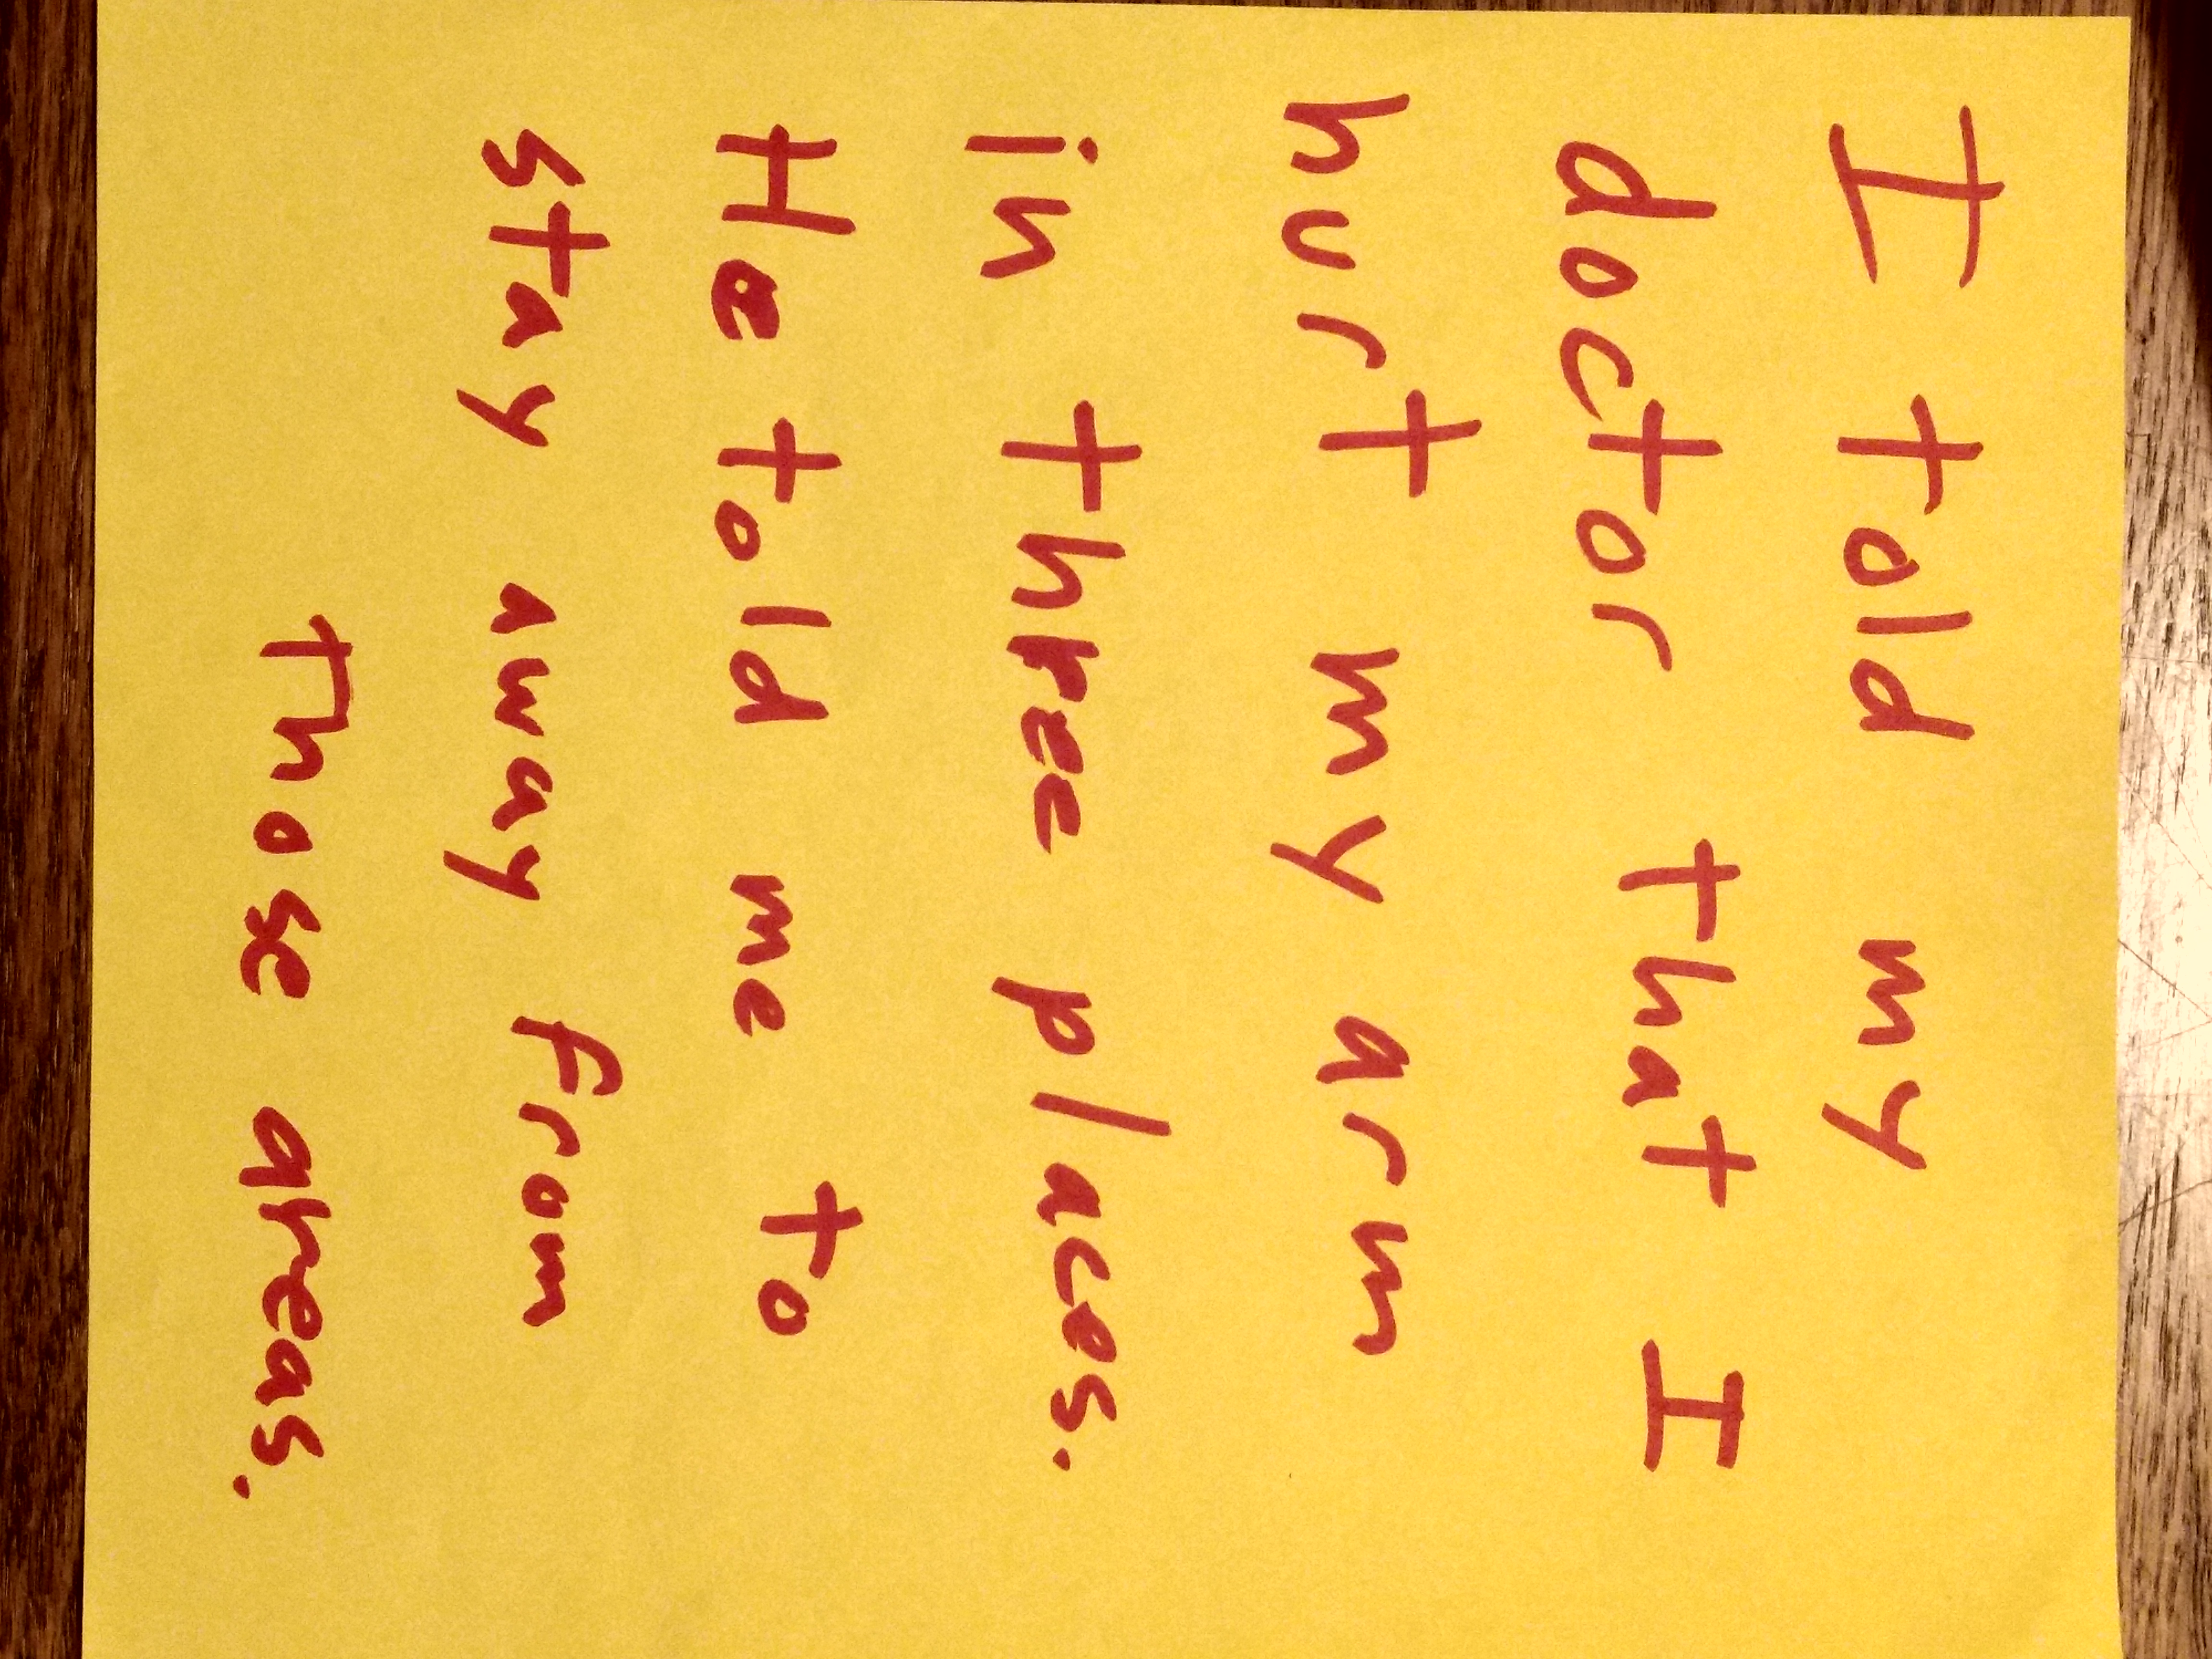 I told my
doctor that I
hurt my arm
in three places.
He told me to
stay away from
those areas.